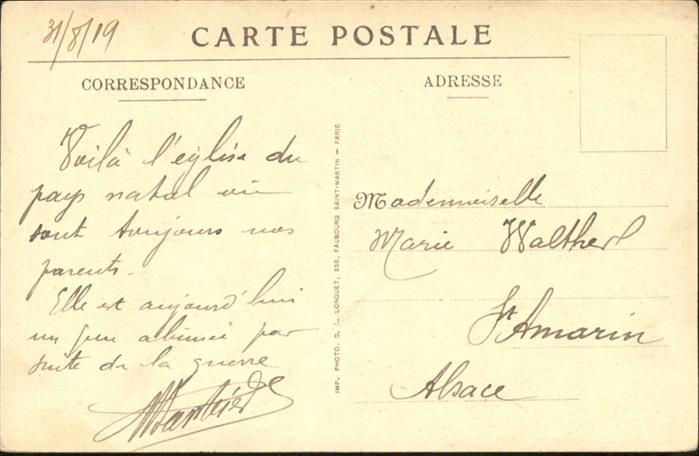 31/8/19
CARTE POSTALE
CORRESPONDANCE
Voilà l'église du
pays natal où
sont toujours nos
parents.
Elle est aujourd'hui
un peu abimée par
suite de la guerre
IMP. PHOTO. D. A. LONGUET, 250, FAUBOURG SAINT-MARTIN — PARIS
ADRESSE
Mademoiselle
Marie Walther
St Amarin
Alsace